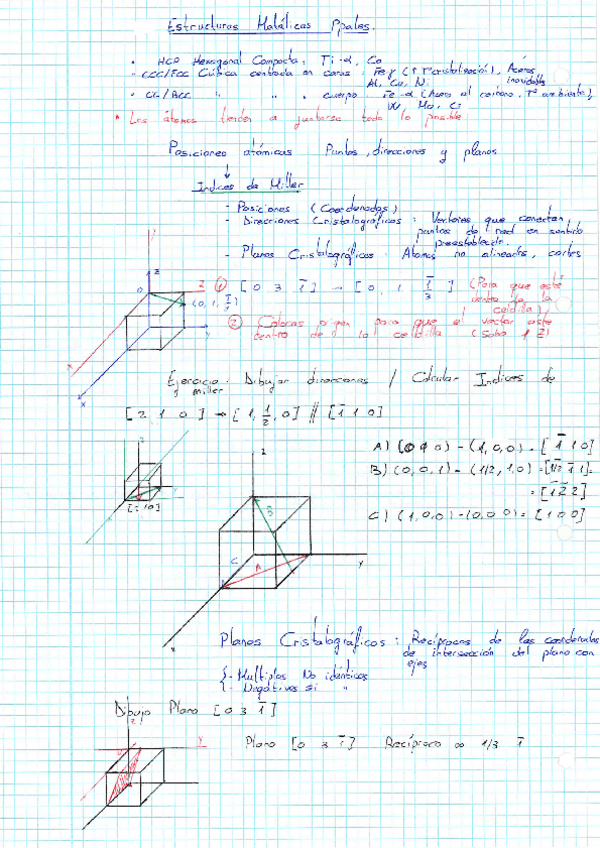 Estructuras Metálicas Ppales.
· HCP Hexagonal Compacta: Ti-α, Co
- CCC/FCC Cúbica centrada en caras: Fe γ (↑ Tª cristalización), Aceros inoxidables
Al, Cu, Ni
· CC/BCC " " " cuerpo Fe-α (Acero al carbono, Tª ambiente),
W, Mo, Cr
* Los átomos tienden a juntarse todo lo posible
Posiciones atómicas Puntos, direcciones y planos
↓
Indices de Miller
- Posiciones (Coordenadas)
- Direcciones Cristalográficas: Vectores que conectan
puntos de red en sentido
preestablecido.
- Planos Cristalográficos: Átomos no alineados, cortes
① [0 3 1̄] → [0, 1 1̄/3] (Para que esté
dentro de la
celdilla)
(0, 1, 1̄/3)
② Colocas origen para que el vector este
dentro de la celdilla (Solo 1 Z)
Ejercicio: Dibujar direcciones / Calcular Indices de
Miller
[2 1 0] → [1, 1/2, 0] // [1̄ 1 0]
A) (0 1 0) - (1, 0, 0) = [1̄ 1 0]
B) (0, 0, 1) - (1/2, 1, 0) = [1̄/2 1̄ 1] =
= [1̄ 2̄ 2]
C) (1, 0, 0) - (0, 0 0) = [1 0 0]
Planos Cristalográficos: Recíprocos de las coordenadas
de intersección del plano con
ejes
{- Multiplos No idénticos
{- Negativos si "
Dibujo Plano [0 3 1̄]
Plano [0 3 1̄] Recíproco ∞ 1/3 1̄